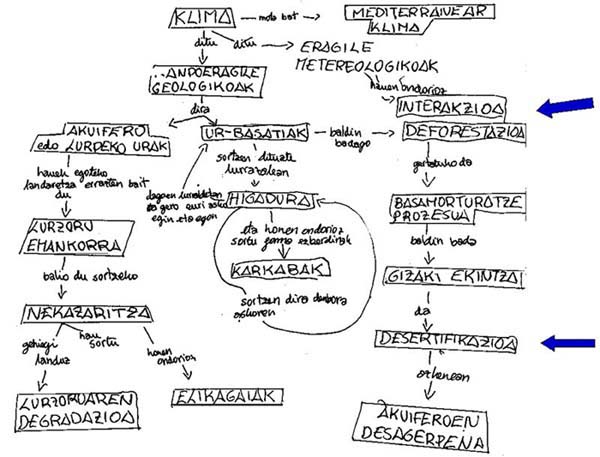 KLIMA
mota bat
MEDITERRANEAR
KLIMA
ditu
ditu
ERAGILE
METEREOLOGIKOAK
KANPOERAGILE
GEOLOGIKOAK
hauen ondorioz
INTERAKZIOA
dira
AKUIFERO
edo LURPEKO URAK
UR-BASATIAK
baldin
badago
DEFORESTAZIOA
hauek egoteko
landaretza errazten bait
du
sortzen dituzte
lurrazalean
gertatuko da
dagoen lurraldetan
eta gero euri asko
egin eta egon
HIGADURA
BASAMORTURATZE
PROZESUA
LURZORU
EMANKORRA
eta honen ondorioz
sortu forma ezberdinak
baldin bada
KARKABAK
GIZAKI EKINTZA
balio du sortzeko
sortzen dira denbora
askoren
da
NEKAZARITZA
DESERTIFIKAZIOA
gehiegi
landuz
hau
sortu
honen
ondorioz
azkenean
LURZORUAREN
DEGRADAZIOA
ELIKAGAIAK
AKUIFEROEN
DESAGERPENA